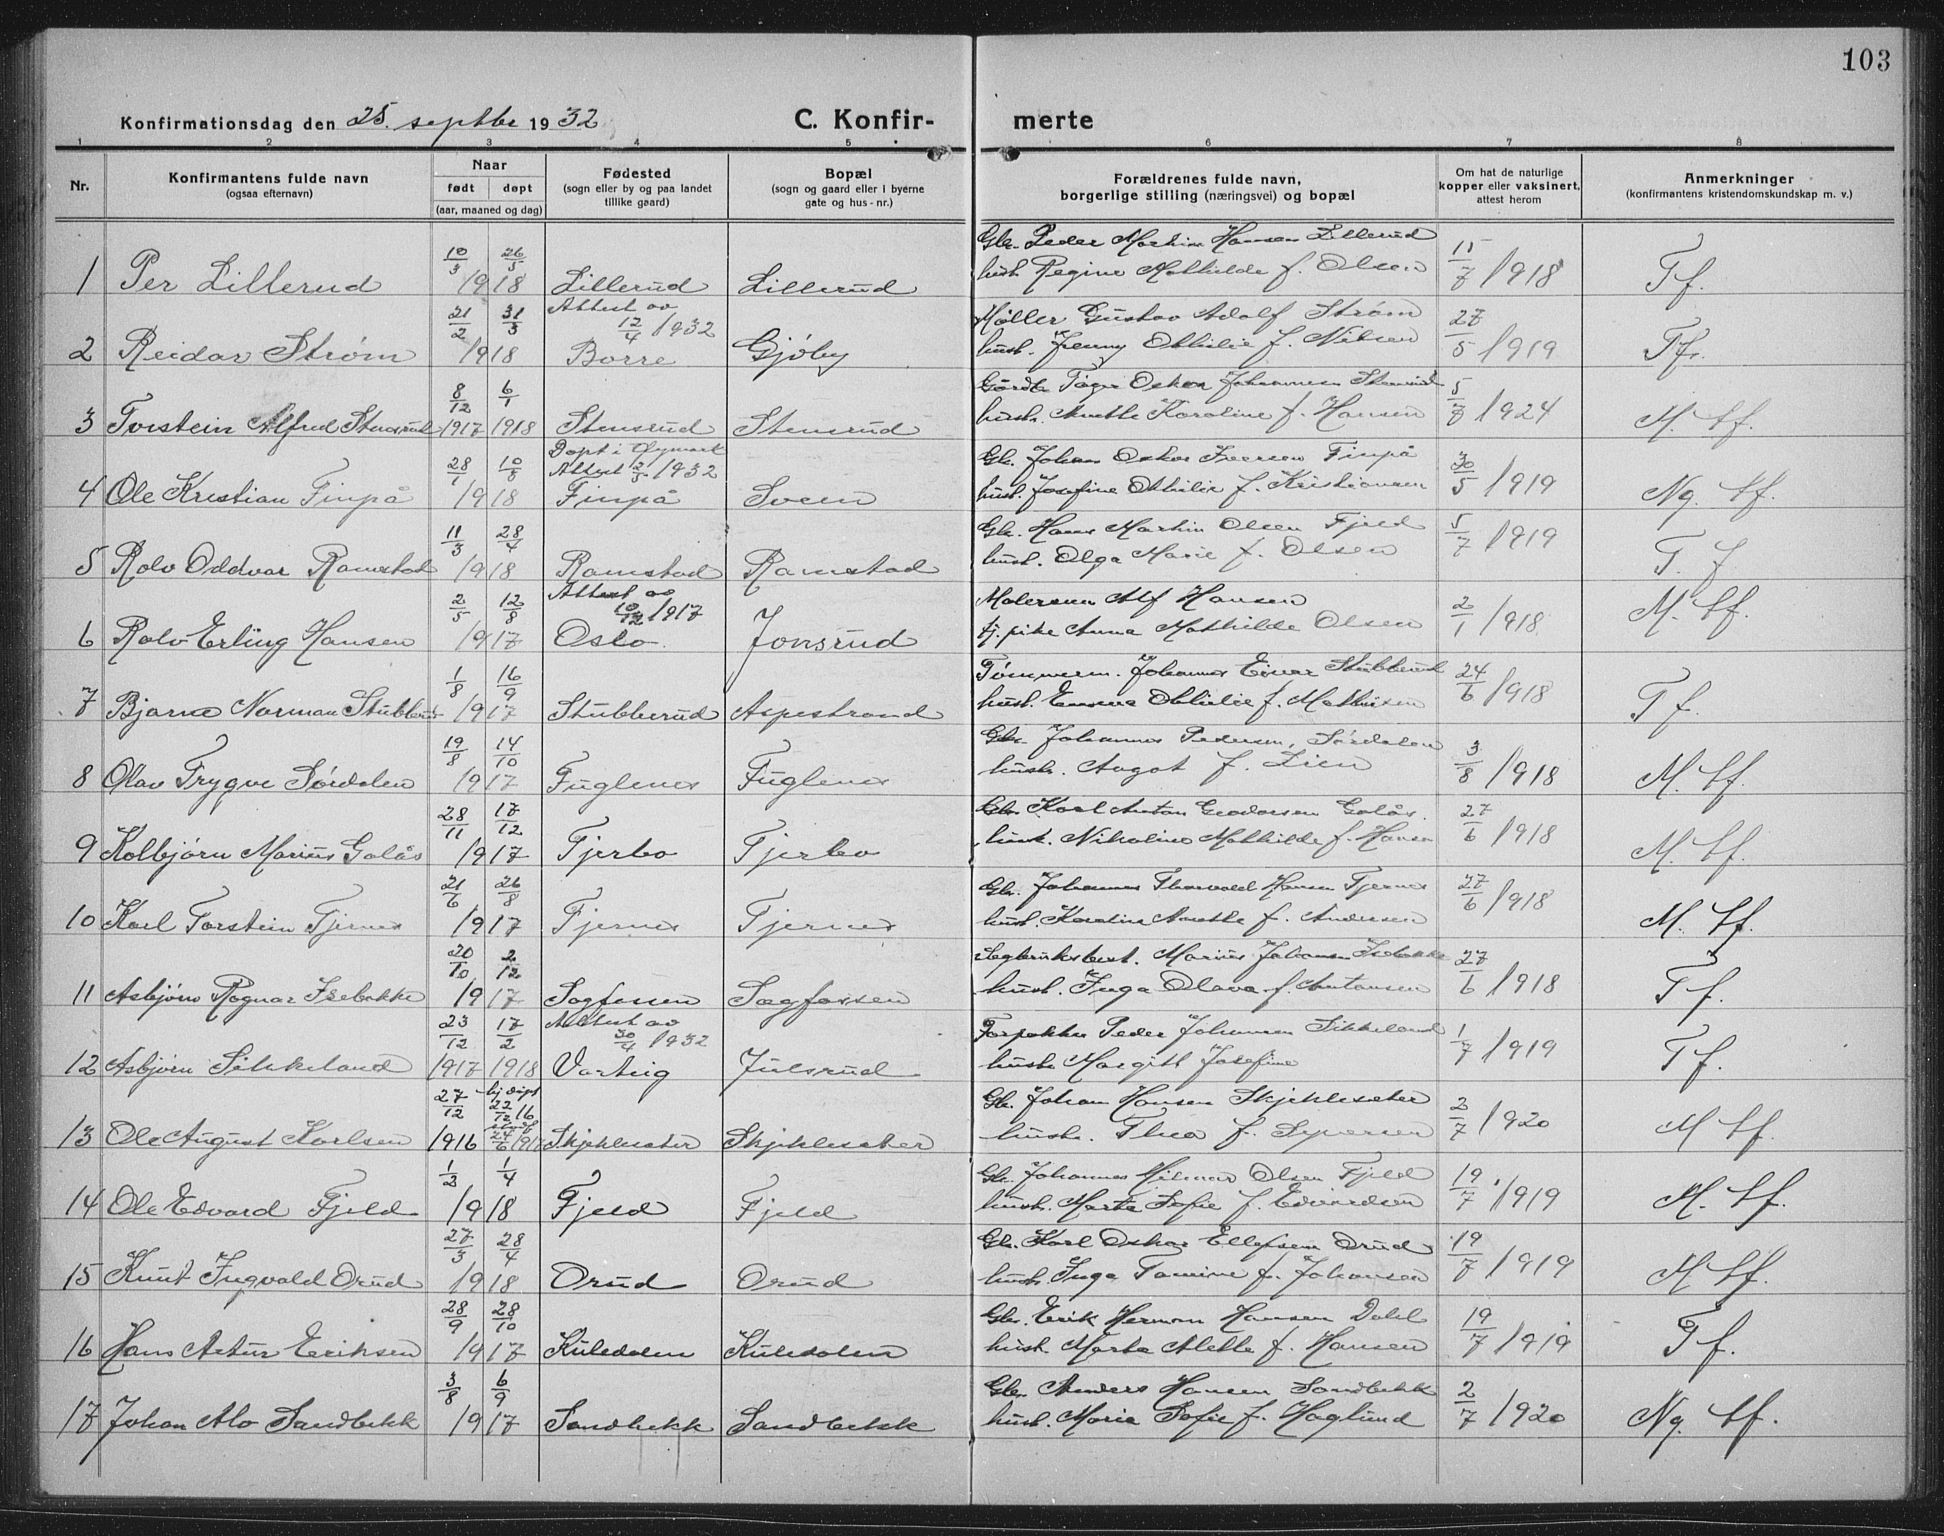 103
Konfirmationsdag den 25. septbr 1932
C. Konfir-
merte
1 2 3 4 5 6 7 8
Nr.
Konfirmantens fulde navn
(ogsaa efternavn)
Naar
født døpt
(aar, maaned og dag)
Fødested
(sogn eller by og paa landet
tillike gaard)
Bopæl
(sogn og gaard eller i byerne
gate og hus-nr.)
Forældrenes fulde navn,
borgerlige stilling (næringsvei) og bopæl
Om hat de naturlige
kopper eller vaksinert,
attest herom
Anmerkninger
(konfirmantens kristendomskundskap m. v.)
10/3 26/5 Gbr. Peder Martin Hansen Lillerud
1 Per Lillerud 1918 Lillerud Lillerud hust. Regine Mathilde f. Olsen 15/7 1918 Tf.
21/2 31/3 Attest av 12/4 1932 Møller Gustav Adolf Strøm
2 Reidar Strøm 1918 Borre Gjøby hust. Jenny Othilie f. Nilsen 27/5 1919 Tf.
8/12 6/1 Oskar Johannesen
3 Torstein Alfred Stensrud 1917 1918 Stensrud Stensrud hust. Anette Karoline f. Hansen 5/7 1924 M. tf.
28/1 10/3 Døpt i Øymark Attest 12/3 1932 Gbr. Johan Oskar Iversen Finpå
4 Ole Kristian Finpå 1918 Finpå Sveen hust. Josefine Othilie f. Kristiansen 30/5 1919 Ng. tf.
11/3 28/4 Gbr. Hans Martin Olsen Fjeld
5 Rolv Oddvar Ramstad 1918 Ramstad Ramstad hust. Olga Marie f. Olsen 5/7 1919 T. f
2/5 12/8 Attest av 10/12 1917 Malersven Alf Hansen
6 Rolv Erling Hansen 1917 Oslo. Jonsrud tj. pike Anna Mathilde Olsen 2/1 1918 M. tf.
1/8 16/9 Tømmerm. Johannes Einar Stubberud
7 Bjarne Norman Stubberud 1917 Stubberud Aspestrand hust. Emma Othilie f. Mathisen 24/6 1918 Tf.
19/8 14/10 Gbr. Johannes Pedersen, Sørdalen
8 Olav Trygve Sørdalen 1917 Fuglenes Fuglenes hust. Aagot f. Lien 3/8 1918 M. tf.
28/11 17/12 Gbr. Karl Anton Golås.
9 Kolbjørn Marius Golås 1917 Tjerbo Tjerbo hust. Nikoline Mathilde f. Hansen 27/6 1918 M. tf.
21/6 26/8 Gbr. Johannes Thorvald Hansen Tjernes
10 Karl Torstein Tjernes 1917 Tjernes Tjernes hust. Karoline Anette f. Andersen 27/6 1918 M. tf.
20/10 2/12 Marius Johansen Isebakke
11 Asbjørn Ragnar Isebakke 1917 Sagfossen Sagfossen hust. Inga Olava f. Antonsen 27/6 1918 Tf.
23/12 17/2 Attest av 30/4 1932 Forpakter Peder Johansen Sikkeland
12 Asbjørn Sikkeland 1917 1918 Varteig Julsrud hust. Margitt Josefine 1/7 1919 Tf.
27/12 hj. døpt 22/12 16 Gbr. Johan Hansen Skjeklesæter
13 Ole August Karlsen 1916 24/6 1917 Skjeklesæter Skjeklesæter hust. Thea f. Syversen 2/7 1920 M tf.
1/2 1/4 Gbr. Johannes Hilmar Olsen Fjeld
14 Ole Edvard Fjeld 1918 Fjeld Fjeld hust. Marta Sofie f. Edvardsen 19/7 1919 M. tf.
27/3 28/4 Gbr. Karl Oskar Ellefsen Orud
15 Knut Ingvald Orud 1918 Orud Orud hust. Inga Tomine f. Johansen 19/7 1919 M tf.
28/9 28/10 Gbr. Erik Herman Hansen Dahl
16 Hans Artur Eriksen 1917 Kuledalen Kuledalen hust. Marta Alette f. Hansen 19/7 1919 Tf.
3/8 6/9 Gbr. Anders Hansen Sandbekk
17 Johan Alv Sandbekk 1917 Sandbekk Sandbekk hust. Marie Sofie f. Haglund 2/7 1920 Ng. tf.